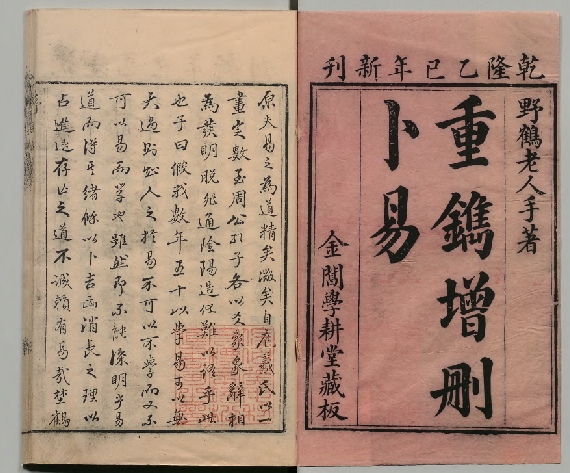 乾隆乙巳年新刊
野鶴老人手著
重鐫增刪
卜易
金閶學耕堂藏板
原夫易之為道精矣微矣自庖羲氏以一
畫定數至周公孔子各以爻象彖辭相
為發明脫非通陰陽造化難以語乎此
也子曰假我數年五十以學易可以無
大過則聖人之於易不可以不學而又不
可以易而學也雖然即不能深明乎易
道而得其緒餘以卜吉凶消長之理以
占進退存亡之道不誠賴有易哉楚鶴